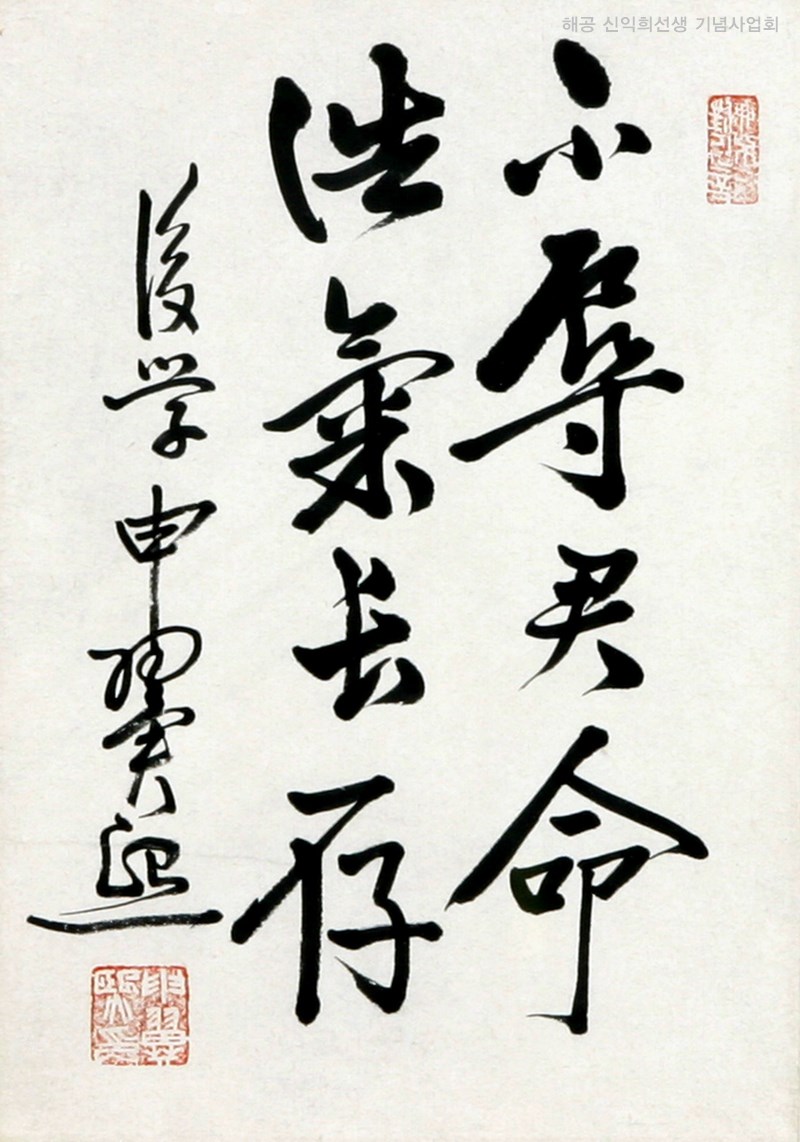 해공 신익희선생 기념사업회
不辱君命
浩氣長存
後學 申翼熙